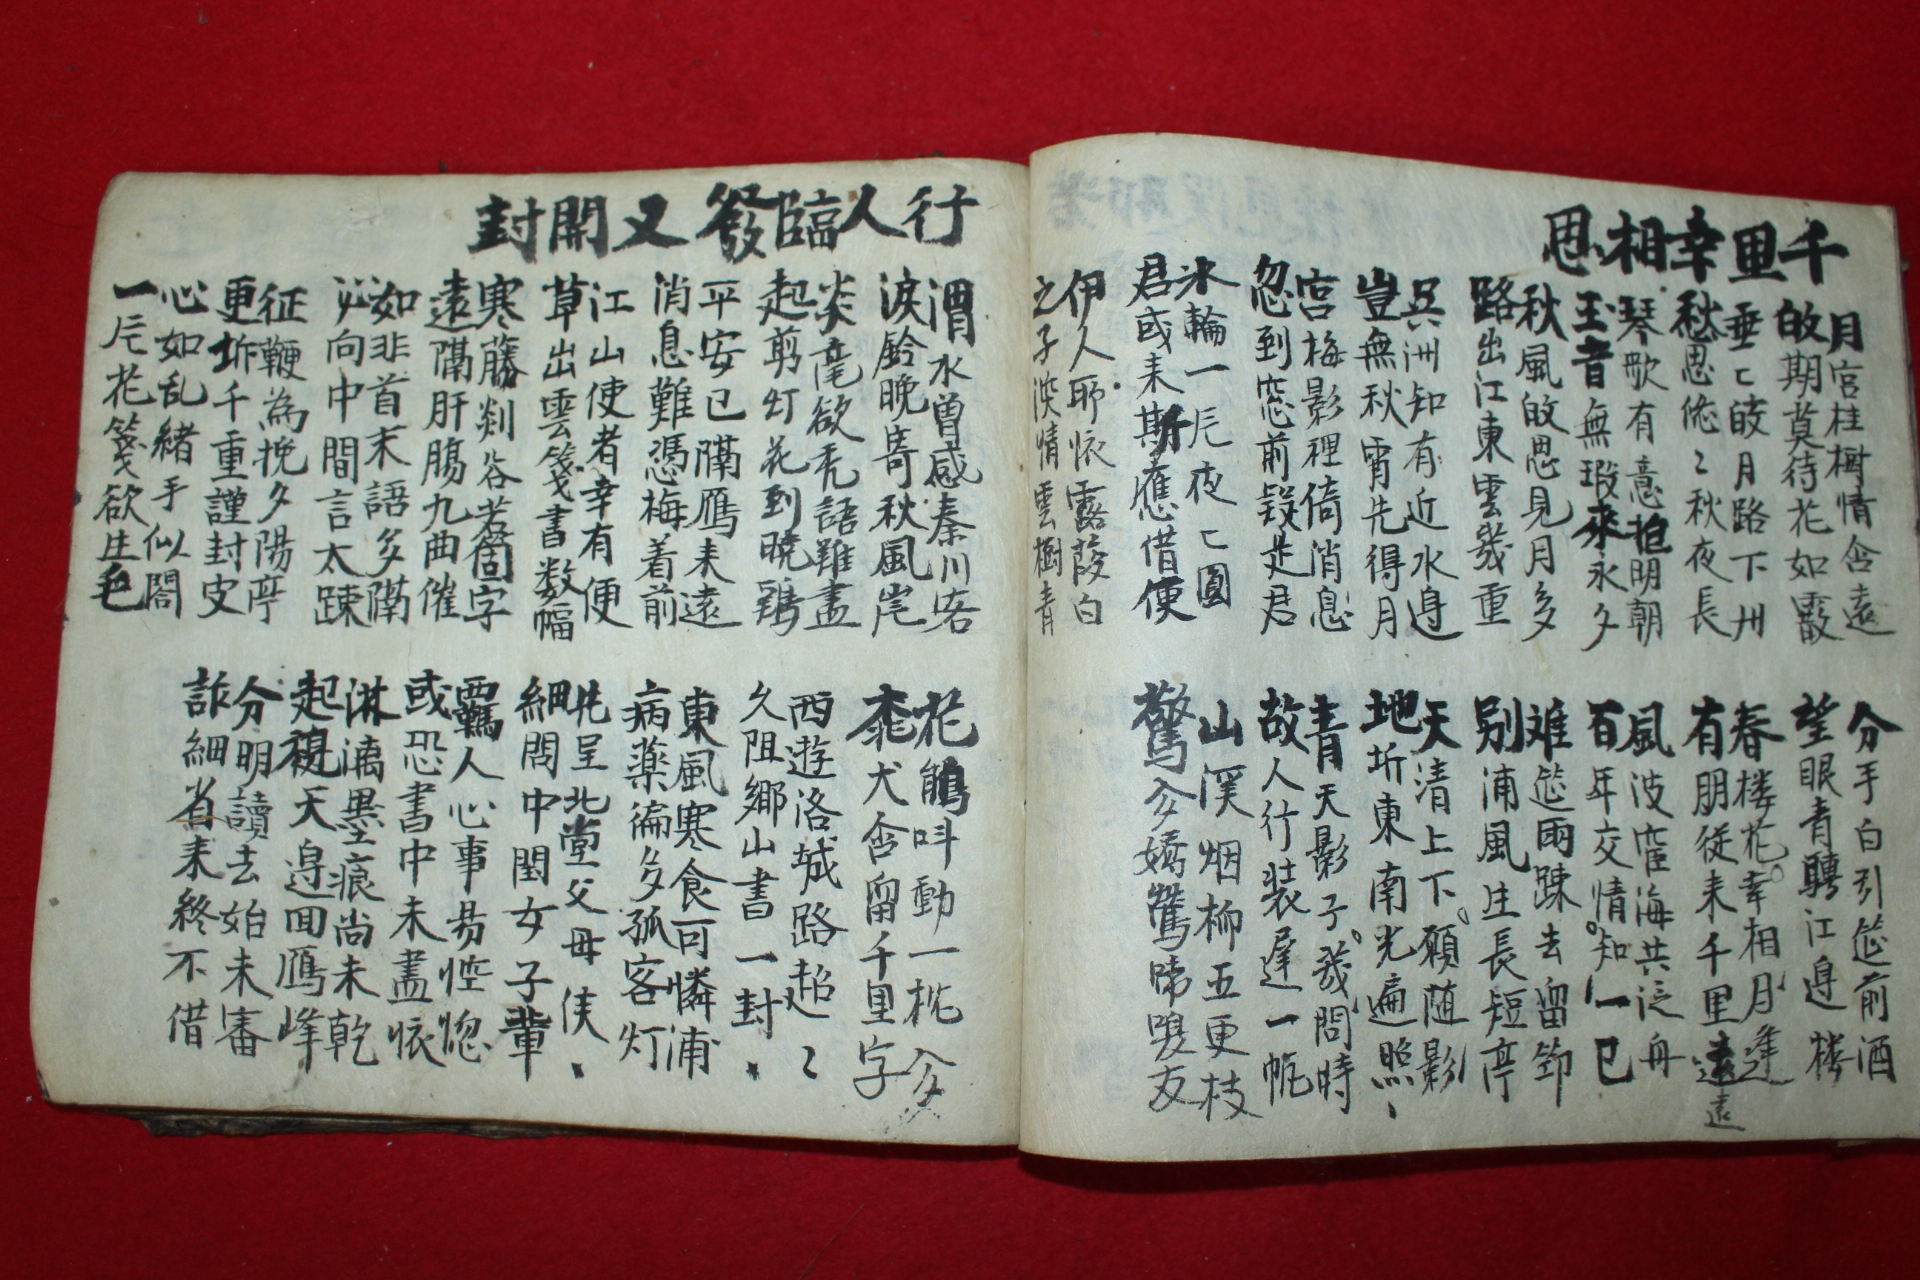 千里幸相思
月宮桂樹情含遠
故期莫待花如霰
垂〻皎月路下州
秋思悠〻秋夜長
琴歌有意抱明朝
玉音無瑕來永夕
秋風故思見月多
路出江東雲幾重
吳洲知有近水邊
豈無秋宵先得月
宮梅影裡倚消息
忽到窓前疑是君
氷輪一片夜〻圓
君或來斯應借便
伊人耶懷露葭白
之子淡情雲樹青
分手白引筵前酒
望眼青聘江邊楼
春楼花幸相月逢
有朋從来千里遠
風波窄海共泛舟
百年交情知一已
难筵雨踈去留節
别浦風生長短亭
天清上下願随影
地圻東南光遍照
青天影子幾問時
故人行裝遅一帆
山溪烟柳五更枝
驚分嬌鶯啼嗅友
行人臨發又開封
渭水曽感秦川客
淚鈴晩寄秋風岸
淡毫欲禿語難盡
起剪灯花到曉鷄
平安已隔雁来遠
消息難憑梅着前
江山使者幸有便
草出雲箋書数幅
寒藤剡谷若箇字
遠隔肝腸九曲催
如非首末語多隔
必向中間言太踈
征鞭為挽夕陽亭
更圻千重謹封皮
心如乱緒手似閣
一片花箋欲生毛
花鵑呌動一枕分
黍犬含留千里字
西遊洛城路超〻
久阻郷山書一封
東風寒食可憐浦
病藥徧多孤客灯
先呈北堂父母侯
細問中閨女子輩
羈人心事易恠惚
或恐書中未盡懷
淋漓墨痕尚未乾
起視天邊回鴈峰
分明讀去始未審
詐細省来終不借